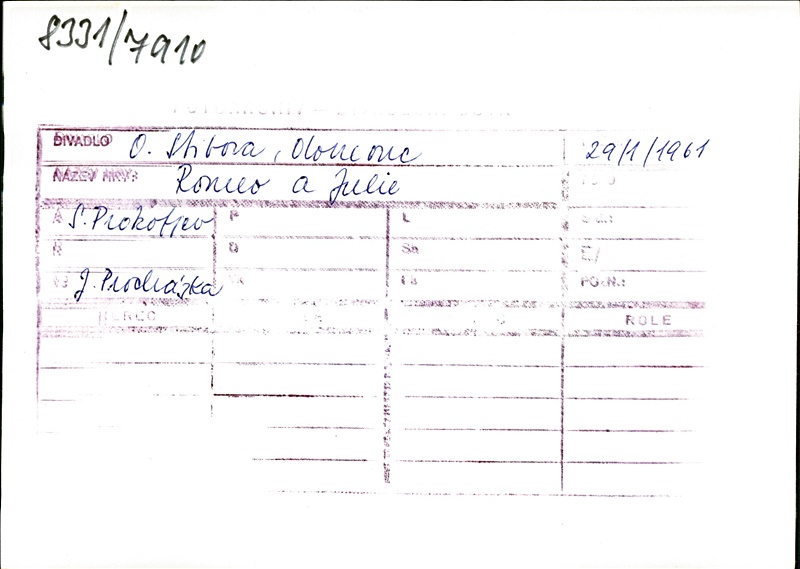 8331/7910
DIVADLO O. Stibora, Olomouc 29/1/1961
NÁZEV HRY: Romeo a Julie
A S. Prokofjev P L
R D Sa E/
J. Procházka PO.N.:
HEREC ROLE